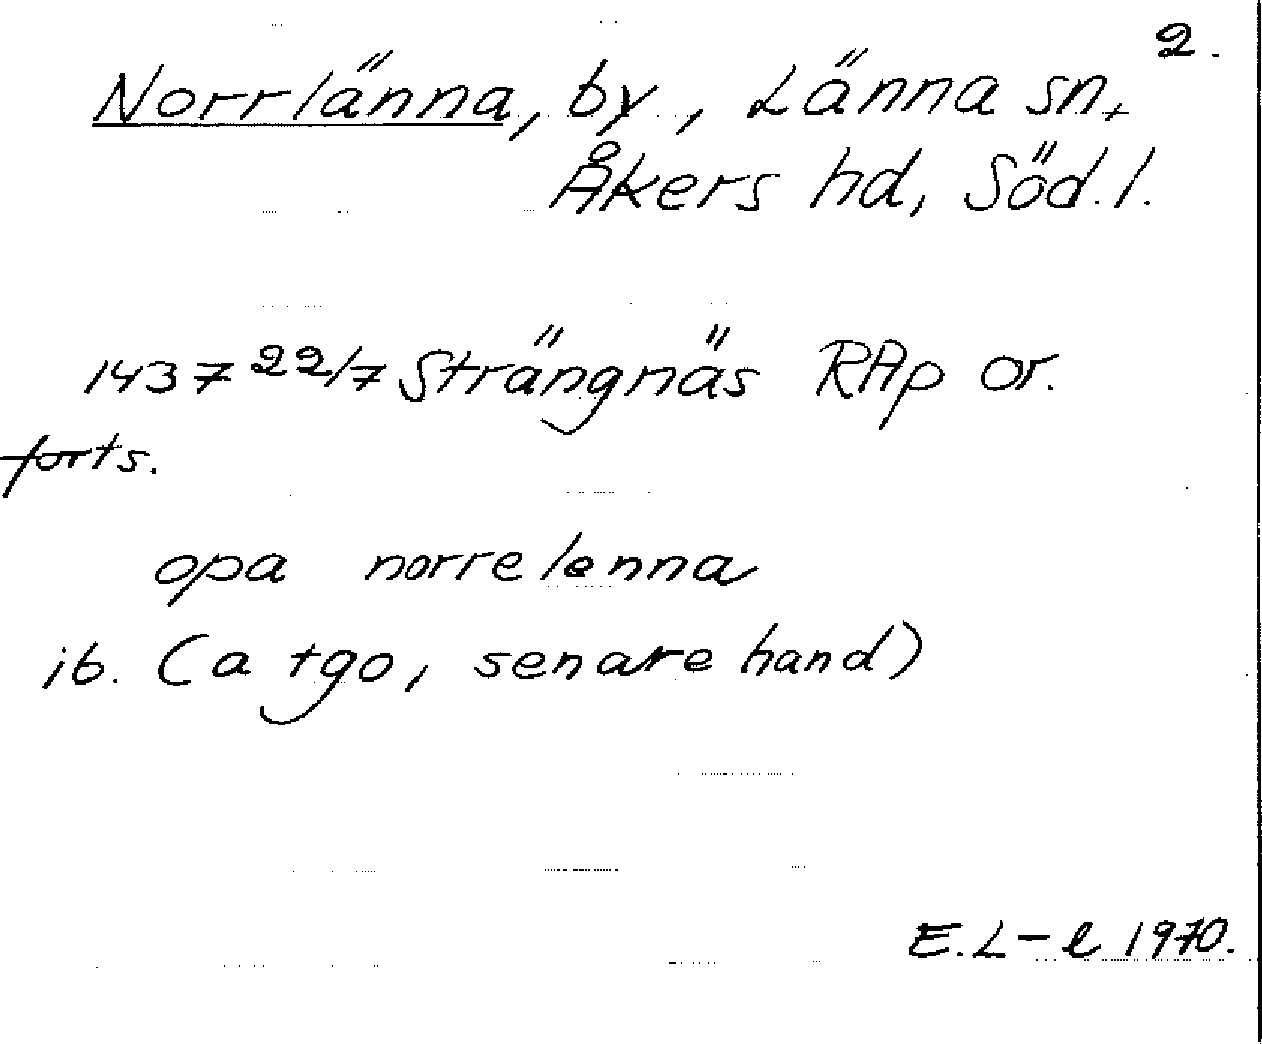 2.
Norrlänna, by, Länna sn,
Åkers hd, Söd.l.
1437 22/7 Strängnäs RAp or.
forts.
opa norrelenna
ib. (a tgo, senare hand)
E.L-l 1970.